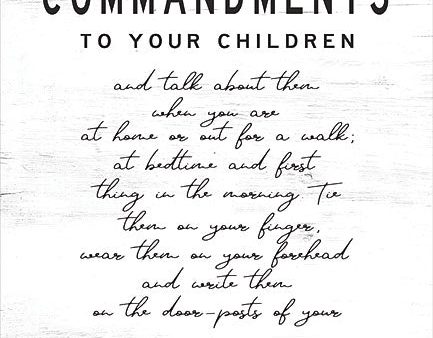 COMMANDMENTS
TO YOUR CHILDREN
and talk about them
when you are
at home or out for a walk;
at bedtime and first
thing in the morning. Tie
them on your finger,
wear them on your forehead
and write them
on the door-posts of your